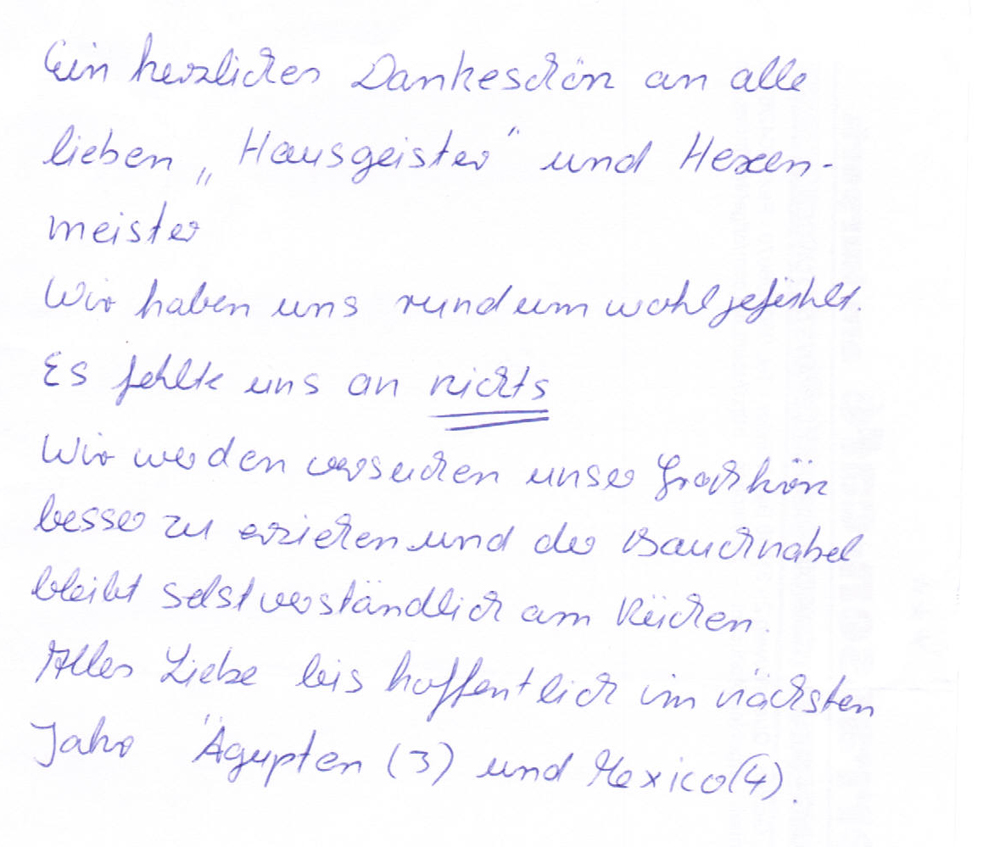 Ein herzliches Dankeschön an alle
lieben „Hausgeister“ und Hexen-
meister
Wir haben uns rundum wohlgefühlt.
Es fehlte uns an nichts
Wir werden versuchen unser
besser zu erziehen und der Bauchnabel
bleibt selstverständlich am Rücken.
Alles Liebe bis hoffentlich im nächsten
Jahr Ägypten (3) und Mexico (4).